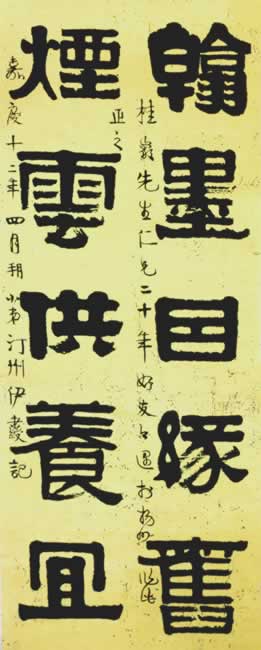 翰墨因緣舊
桂巖先生仁兄二十年好友遇於揚州
正之
煙雲供養宜
嘉慶十二年四月朔小弟汀州伊秉綬記